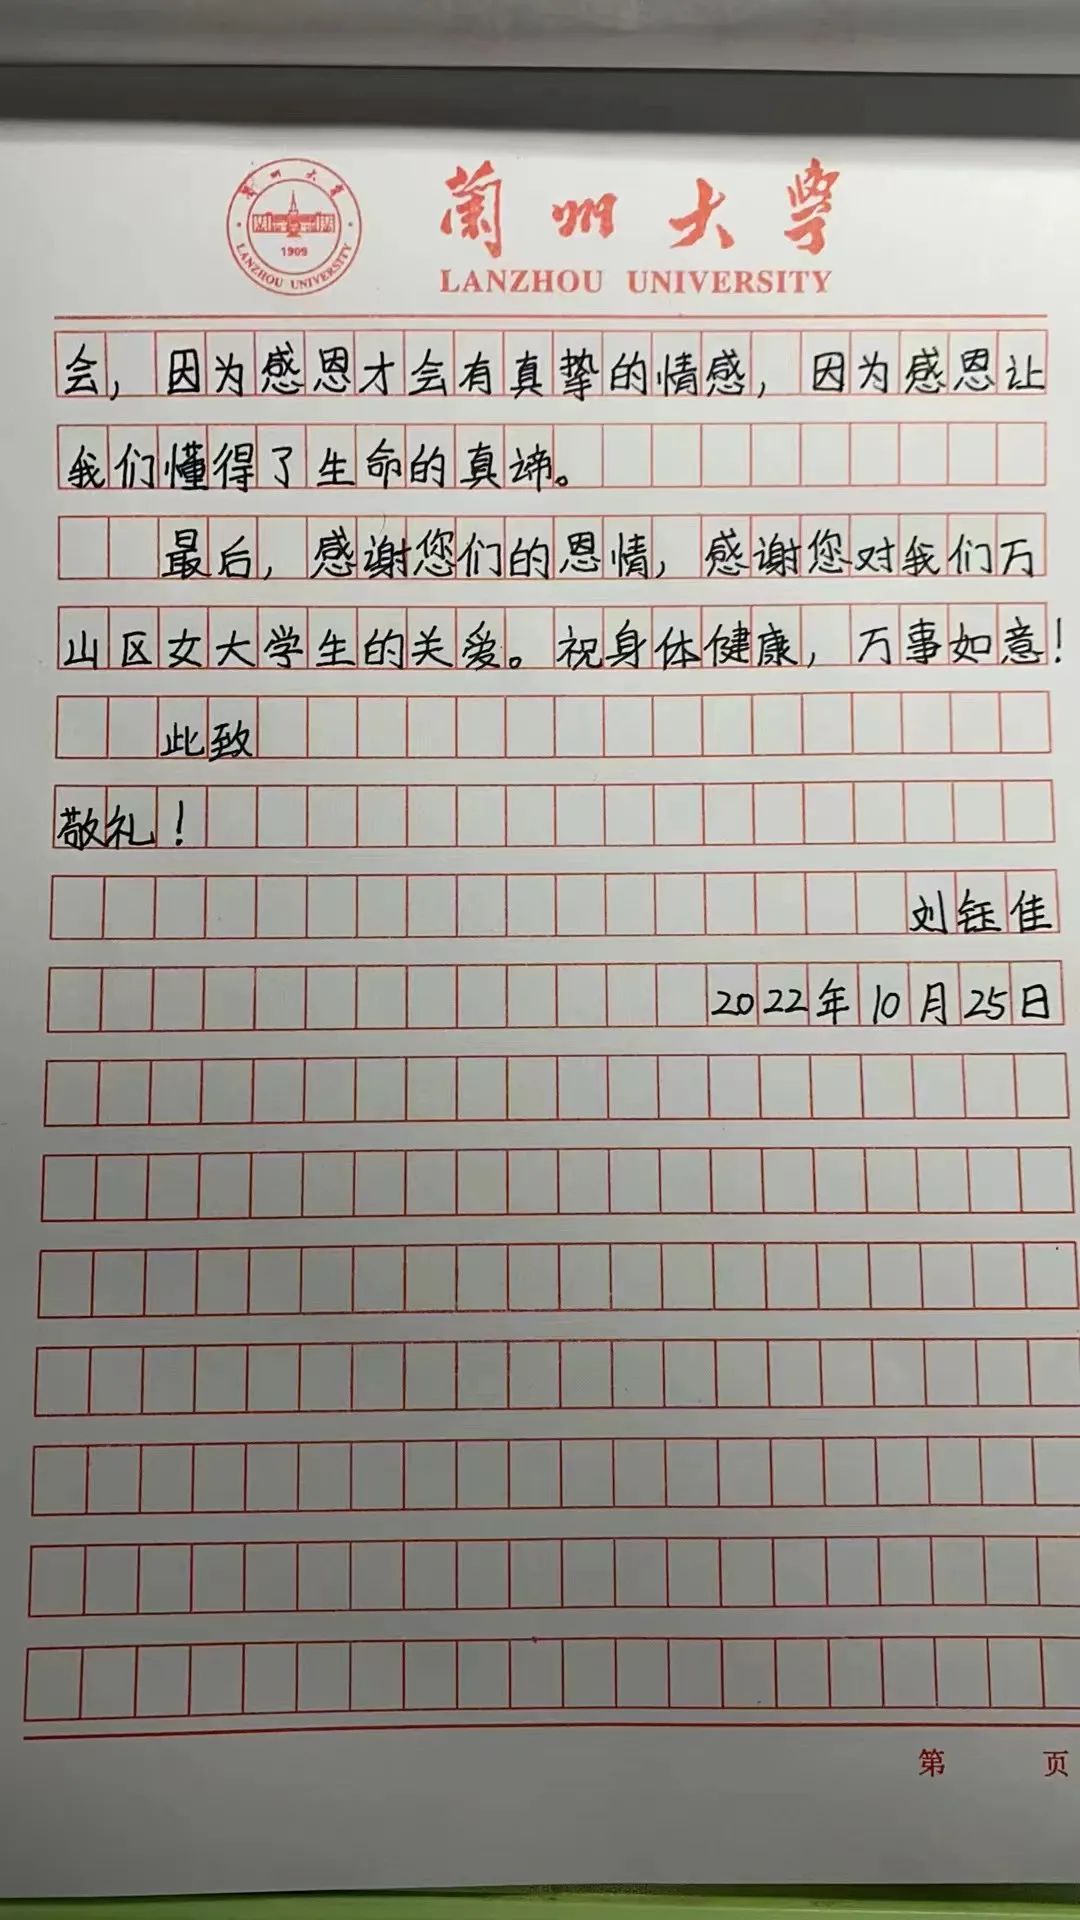 兰州大学
1909
LANZHOU UNIVERSITY
蘭州大學
LANZHOU UNIVERSITY
会，因为感恩才会有真挚的情感，因为感恩让
我们懂得了生命的真谛。
最后，感谢您们的恩情，感谢您对我们万
山区女大学生的关爱。祝身体健康，万事如意！
此致
敬礼！
刘钰佳
2022年10月25日
第 页